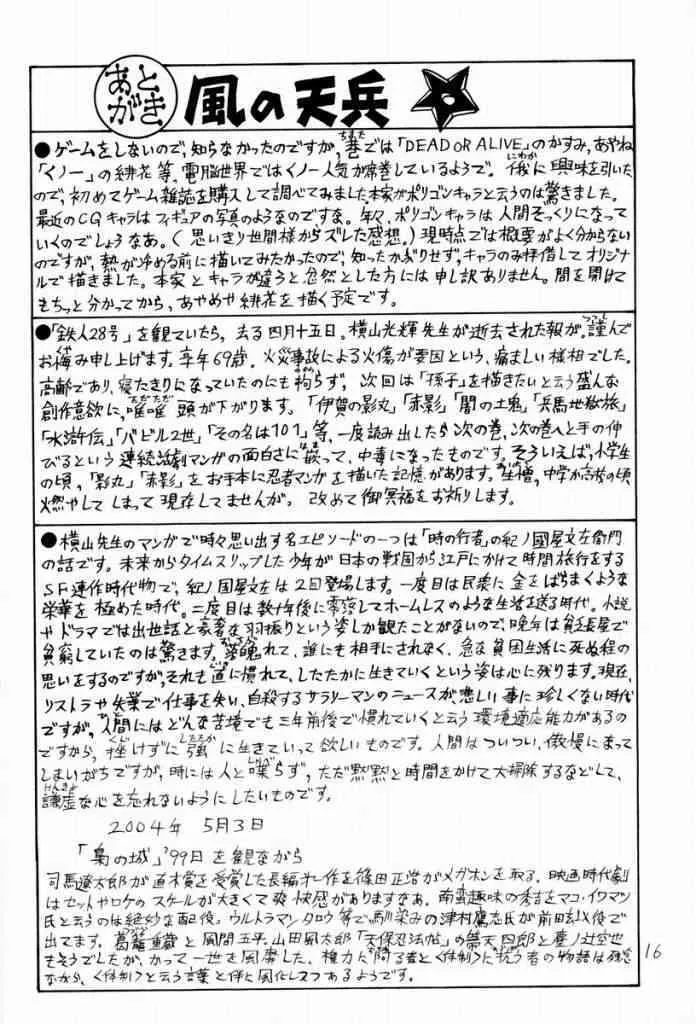 あとがき 風の天兵
●ゲームをしないので、知らなかったのですが、巷では「DEAD OR ALIVE」のかすみ、あやね
「くノ一」の緋花 等、電脳世界ではくノ一人気が席巻しているようで。俄に興味を引いた
ので、初めてゲーム雑誌を購入して調べてみました本家がポリゴンキャラと云うのは驚きました。
最近のCGキャラはフィギュアの写真のようなのですな。年々、ポリゴンキャラは人間そっくりになって
いくのでしょうなあ。(思いきり世間様からズレた感想。)現時点では概要がよく分からない
のですが、熱が冷める前に描いてみたかったので、知ったかぶりせず、キャラのみ拝借してオリジナ
ルで描きました。本家とキャラが違うと忽然とした方には申し訳ありません。間を開けて
もちっと分かってから、あやめや緋花を描く予定です。
●「鉄人28号」を観ていたら、去る四月十五日。横山光輝先生が逝去された報が。謹んで
お悔み申し上げます。享年69歳。火災事故による火傷が要因という、痛ましい様相でした。
高齢であり、寝たきりになっていたのにも拘らず、次回は「孫子」を描きたいと云う盛んな
創作意欲に、唯唯 頭が下がります。「伊賀の影丸」「赤影」「闇の土鬼」「兵馬地獄旅」
「水滸伝」「バビル2世」「その名は101」等、一度読み出したら次の巻、次の巻へと手の伸
びるという連続活劇マンガの面白さに嵌って、中毒になったものです。そういえば、小学生
の頃、「影丸」「赤影」をお手本に忍者マンガを描いた記憶があります。生憎、中学か高校の頃
燃やしてしまって現存してませんが。改めて御冥福をお祈りします。
●横山先生のマンガで時々思い出す名エピソードの一つは「時の行者」の紀ノ國屋文左衛門
の話です。未来からタイムスリップした少年が日本の戦国から江戸にかけて時間旅行をする
SF連作時代物で、紀ノ国屋文左は2回登場します。一度目は民衆に金をばらまくような
栄華を極めた時代。二度目は数十年後に零落してホームレスのような生活を送る時代。小説
やドラマでは出世話と豪奢な羽振りという姿しか観たことがないので、晩年は貧乏長屋で
貧窮していたのは驚きます。落魄れて、誰にも相手にされなく、急な貧困生活に死ぬ程の
思いをするのですが、それも直に慣れて、したたかに生きていくという姿は心に残ります。現在、
リストラや失業で仕事を失い、自殺するサラリーマンのニュースが、悲しい事に珍しくない時代
ですが、人間にはどんな苦境でも三年前後で慣れていくと云う環境適応能力があるの
ですから、挫けずに強に生きていって欲しいものです。人間はついつい、傲慢になって
しまいがちですが、時には人と喋らず、ただ黙黙と時間をかけて大掃除するなどして、
謙虚な心を忘れないようにしたいものです。
2004年 5月3日
「梟の城」'99日を観ながら
司馬遼太郎が直木賞を受賞した長編オ一作を篠田正浩がメガホンを取る。映画時代劇
はセットやロケのスケールが大きくて爽快感がありますなあ。南蛮趣味の秀吉をマコ・イワマツ
氏と云うのは絶妙な配役。ウルトラマンタロウ等で馴染みの津村鷹志氏が前田玄以役で
出てます。葛籠重蔵と風間五平。山田風太郎「天保忍法帖」の
もそうでしたが、かつて一世を風靡した、権力に抗う者と〈体制〉に抗う者の物語は残念
ながら、〈体制〉と云う言葉と伴に風化しつつあるようです。
16